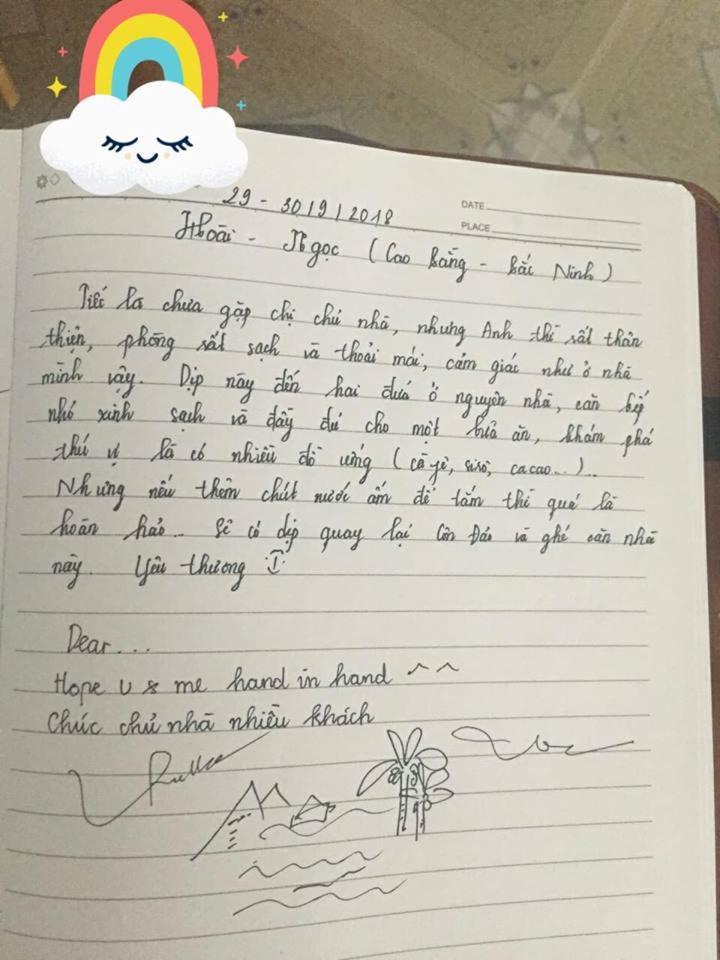 DATE
PLACE
29 - 30/9/2018
Hoài - Ngọc (Cao Bằng - Bắc Ninh)
Tiếc là chưa gặp chị chủ nhà, nhưng Anh thì rất thân
thiện, phòng rất sạch và thoải mái, cảm giác như ở nhà
mình vậy. Dịp này đến hai đứa ở nguyên nhà, căn bếp
nhỏ xinh sạch và đầy đủ cho một bữa ăn, khám phá
thú vị là có nhiều đồ uống (cà fê, siro, cacao...)...
Nhưng nếu thêm chút nước ấm để tắm thì quả là
hoàn hảo... Sẽ có dịp quay lại Côn Đảo và ghé căn nhà
này. Yêu thương
Dear...
Hope U & me hand in hand ^^
Chúc chủ nhà nhiều khách